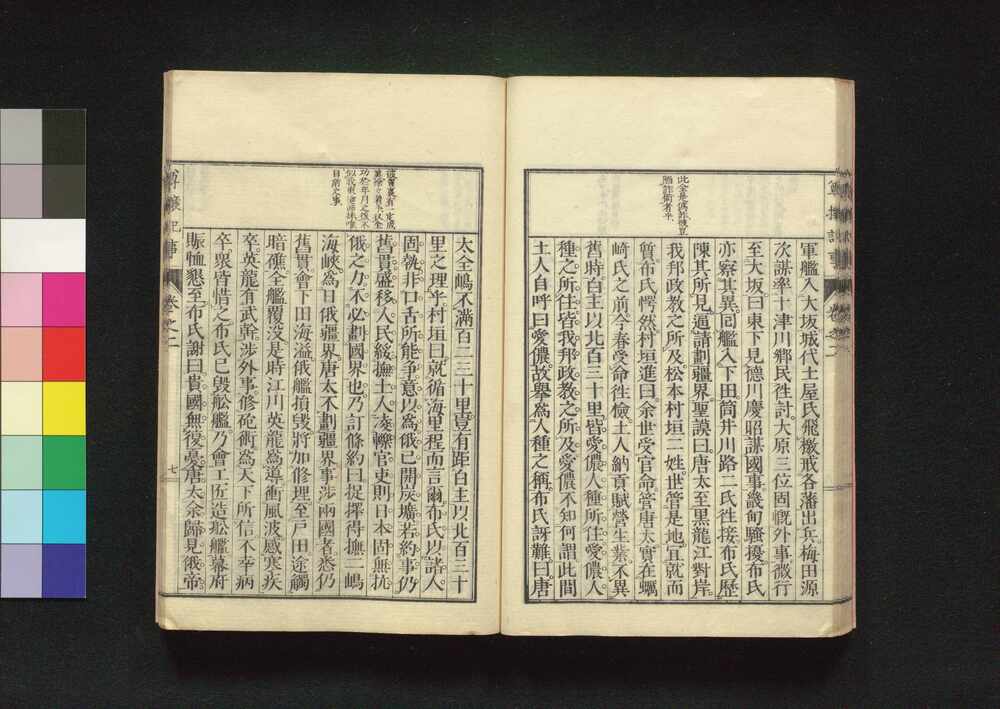 此金是鴻詐彼豆
賂詐衛者乎
軍艦入大坂城代土屋氏飛檄戒各藩出兵梅田源
次謀率十津川鄉民往討大原三位固慨外事微行
至大坂曰東下見德川慶昭謀國事畿甸騷擾布氏
亦察其異回艦入下田筒井川路二氏往接布氏歷
陳其所見遁請劃疆界聖謨曰唐太至黑龍江對岸
我邦政教之所及松本村垣二姓世管是地宜就而
質布氏愕然村垣進曰余世受官命管唐太實在蠣
崎氏之前今春受命往檢土人納貢賦營生業不異
舊時自白主以北百三十里皆愛儂人種所往愛儂人
種之所往皆我邦政教之所及愛儂不知何謂此間
土人自呼曰愛儂故舉為人種之稱布氏訝難曰唐
太全嶋不滿百二三十里豈有距白主以北百三十
里之理乎村垣曰就循海里程而言爾布氏以諸人
固執非口舌所能爭意以為俄已開灰壙若約事仍
舊貫盛移人民綏撫土人凌轢官吏則日本固無抗
俄之力不必劃國界也乃訂條約曰捉擇得撫二嶋
海峽為日俄疆界唐太不劃疆界事涉兩國者悉仍
舊貫會下田海溢俄艦損毀將加修理至戶田途觸
暗礁全艦覆沒是時江川英龍為導衝風波感寒疾
卒英龍有武幹涉外事修砲術為天下所信不幸病
卒眾皆惜之布氏已毀舩艦乃會工匠造舩艦幕府
賑恤懇至布氏謝曰貴國無復憂唐太余歸見俄帝
卷之二
七